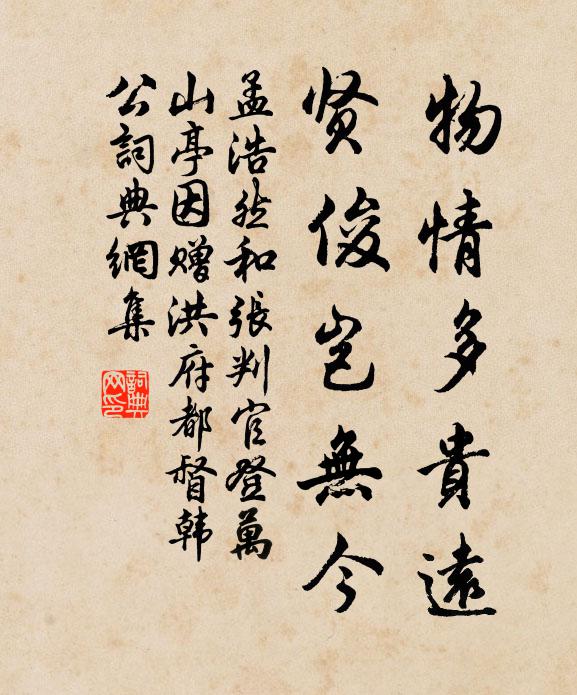 物情多貴遠
贤俊岂無今
孟浩然和張判官登萬
山亭因赠洪府都督韩
公詞典網集
詞典
网印